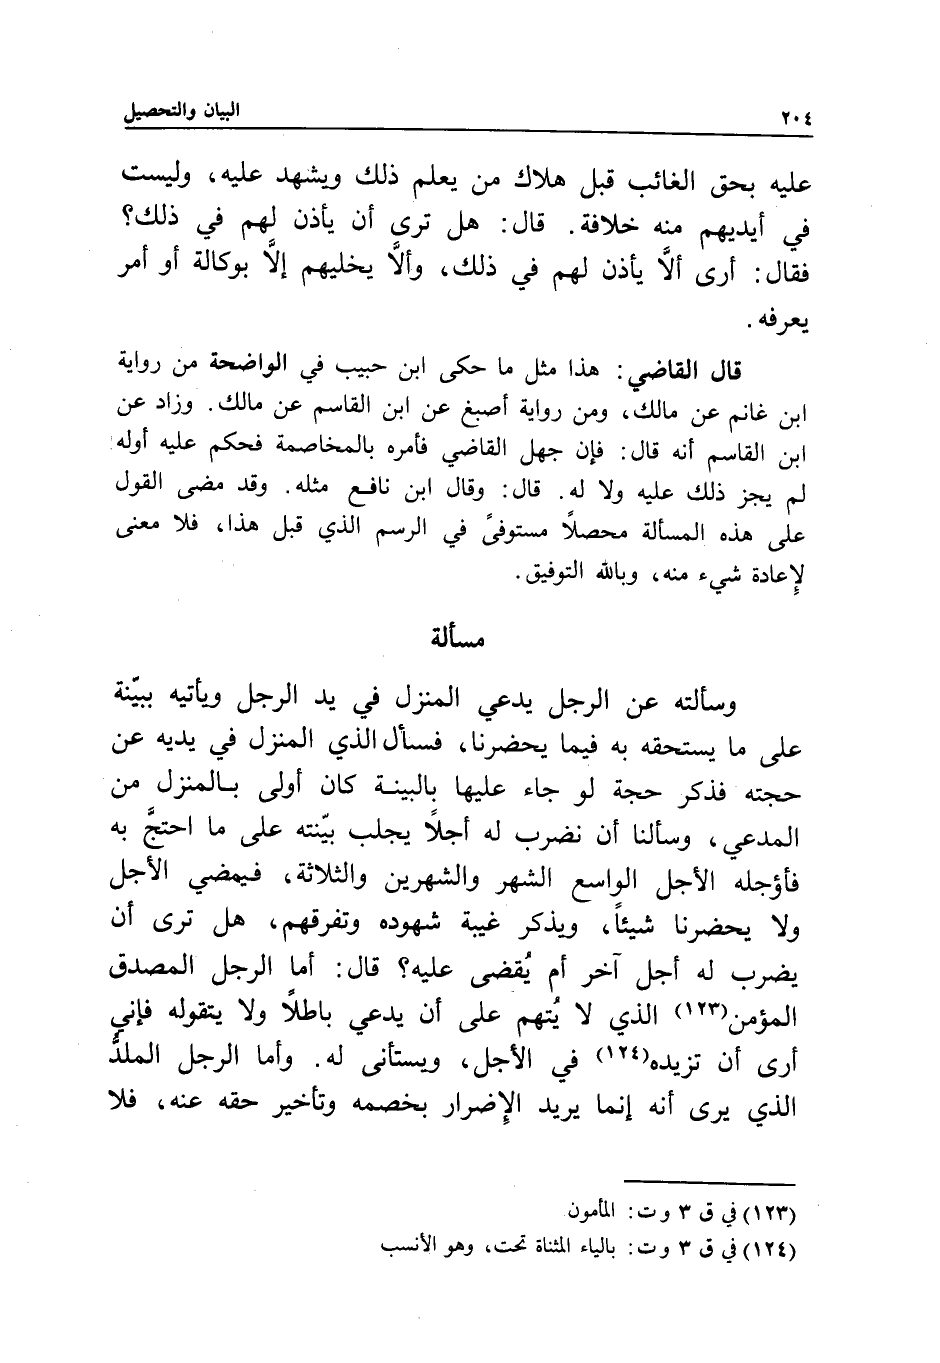 ٢٠٤ البيان والتحصيل
عليه بحق الغائب قبل هلاك من يعلم ذلك ويشهد عليه، وليست
في أيديهم منه خلافة. قال: هل ترى أن يأذن لهم في ذلك؟
فقال: أرى ألَّا يأذن لهم في ذلك، وألَّا يخليهم إلَّا بوكالة أو أمر
يعرفه.
قال القاضي: هذا مثل ما حكى ابن حبيب في الواضحة من رواية
ابن غانم عن مالك، ومن رواية أصبغ عن ابن القاسم عن مالك. وزاد عن
ابن القاسم أنه قال: فإن جهل القاضي فأمره بالمخاصمة فحكم عليه أوله
لم يجز ذلك عليه ولا له. قال: وقال ابن نافع مثله. وقد مضى القول
على هذه المسألة محصلًا مستوفىً في الرسم الذي قبل هذا، فلا معنى
لإعادة شيء منه، وبالله التوفيق.
مسألة
وسألته عن الرجل يدعي المنزل في يد الرجل ويأتيه ببيّنة
على ما يستحقه به فيما يحضرنا، فسأل الذي المنزل في يديه عن
حجته فذكر حجة لو جاء عليها بالبينة كان أولى بالمنزل من
المدعي، وسألنا أن نضرب له أجلًا يجلب بيّنته على ما احتجَّ به
فأؤجله الأجل الواسع الشهر والشهرين والثلاثة، فيمضي الأجل
ولا يحضرنا شيئاً، ويذكر غيبة شهوده وتفرقهم، هل ترى أن
يضرب له أجل آخر أم يُقضى عليه؟ قال: أما الرجل المصدق
المؤمن(١٢٣) الذي لا يُتهم على أن يدعي باطلًا ولا يتقوله فإني
أرى أن تزيده(١٢٤) في الأجل، ويستأنى له. وأما الرجل الملدُّ
الذي يرى أنه إنما يريد الإضرار بخصمه وتأخير حقه عنه، فلا
(١٢٣) في ق ٣ و ت: المأمون
(١٢٤) في ق ٣ و ت: بالياء المثناة تحت، وهو الأنسب